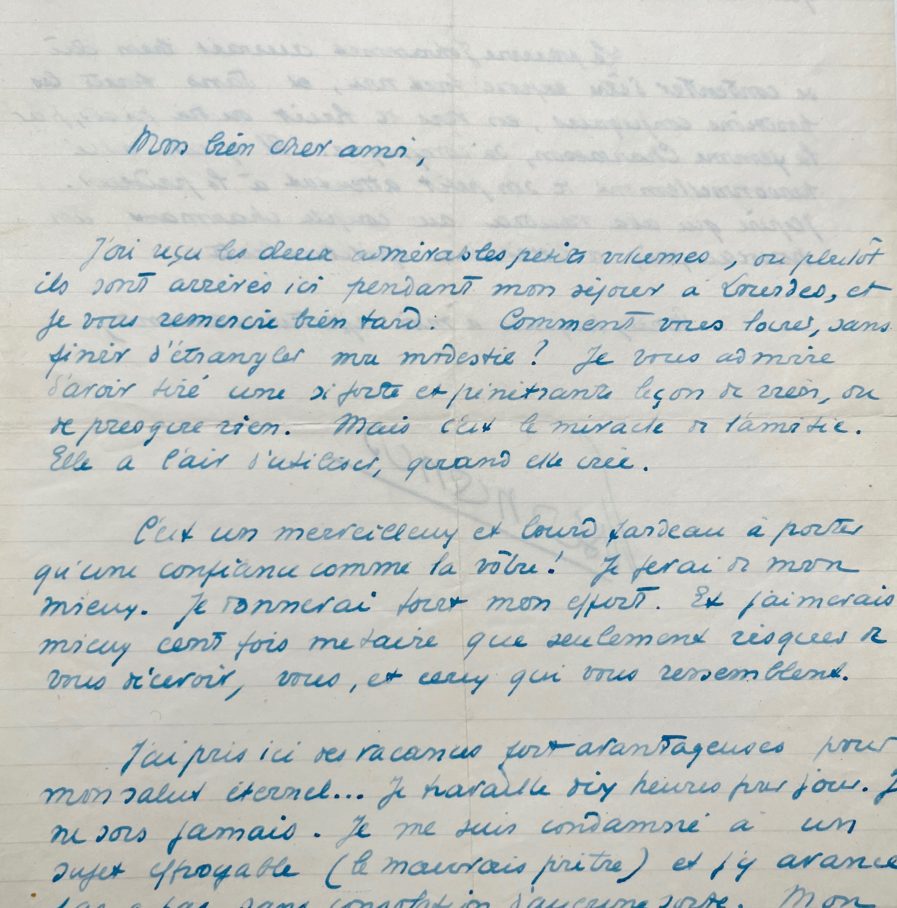 Mon bien cher ami,
J'ai reçu les deux admirables petits volumes, ou plutôt
ils sont arrivés ici pendant mon séjour à Lourdes, et
je vous remercie bien tard. Comment vous louer, sans
finir d'étrangler ma modestie ? Je vous admire
d'avoir tiré une si forte et pénétrante leçon de rien, ou
de presque rien. Mais c'est le miracle de l'amitié.
Elle a l'air d'utiliser, quand elle crée.
C'est un merveilleux et lourd fardeau à porter
qu'une confiance comme la vôtre ! Je ferai de mon
mieux. Je donnerai tout mon effort. Et j'aimerais
mieux cent fois me taire que seulement risquer de
vous décevoir, vous, et ceux qui vous ressemblent.
J'ai pris ici des vacances fort avantageuses pour
mon salut éternel... Je travaille dix heures par jour. J
ne sors jamais. Je me suis condamné à un
sujet effroyable (le mauvais prêtre) et j'y avance
pas à pas, sans consolation d'aucune sorte. Mon